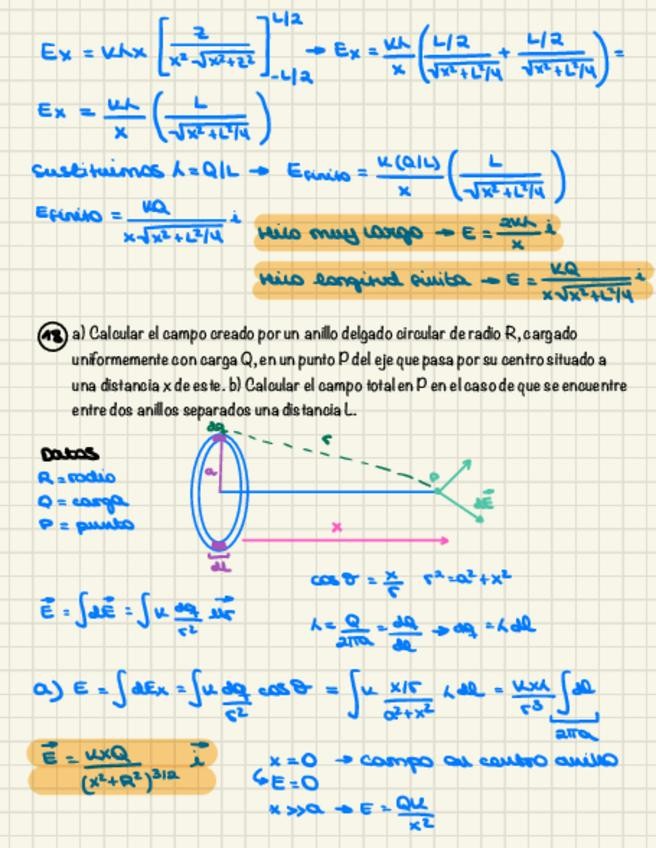 Ex = kλx [z / x²·√x²+z²]^L/2_-L/2 → Ex = kλ/x (L/2 / √x²+L²/4 + L/2 / √x²+L²/4) =
Ex = kλ/x (L / √x²+L²/4)
sustituimos λ=Q/L → Efinito = k(Q/L)/x (L / √x²+L²/4)
Efinito = kQ / x√x²+L²/4 i
Hilo muy largo → E = 2kλ/x i
Hilo longitud finita → E = kQ / x√x²+L²/4 i
18 a) Calcular el campo creado por un anillo delgado circular de radio R, cargado
uniformemente con carga Q, en un punto P del eje que pasa por su centro situado a
una distancia x de este. b) Calcular el campo total en P en el caso de que se encuentre
entre dos anillos separados una distancia L.
Datos
R = radio
Q = carga
P = punto
dq
r
a
P
dE
x
dl
cos θ = x/r r² = a² + x²
E = ∫dE = ∫k dq/r² ur
λ = Q/2πa = dq/dl → dq = λ dl
a) E = ∫dEx = ∫k dq/r² cos θ = ∫k x/r / a²+x² λ dl = kxλ/r³ ∫dl
2πa
E = kxQ / (x²+R²)^3/2 i
x=0 → campo en centro anillo
↳ E=0
x>>a → E = Qk/x²